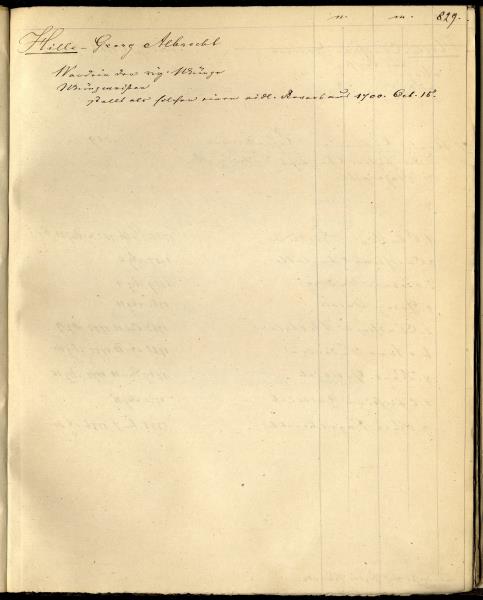 n. m. 829.
Hille - Georg Albrecht
Wardein der rig. Münze
Münzmeister
stellt als solcher einen eidl. Revers aus 1700. Oct. 18.